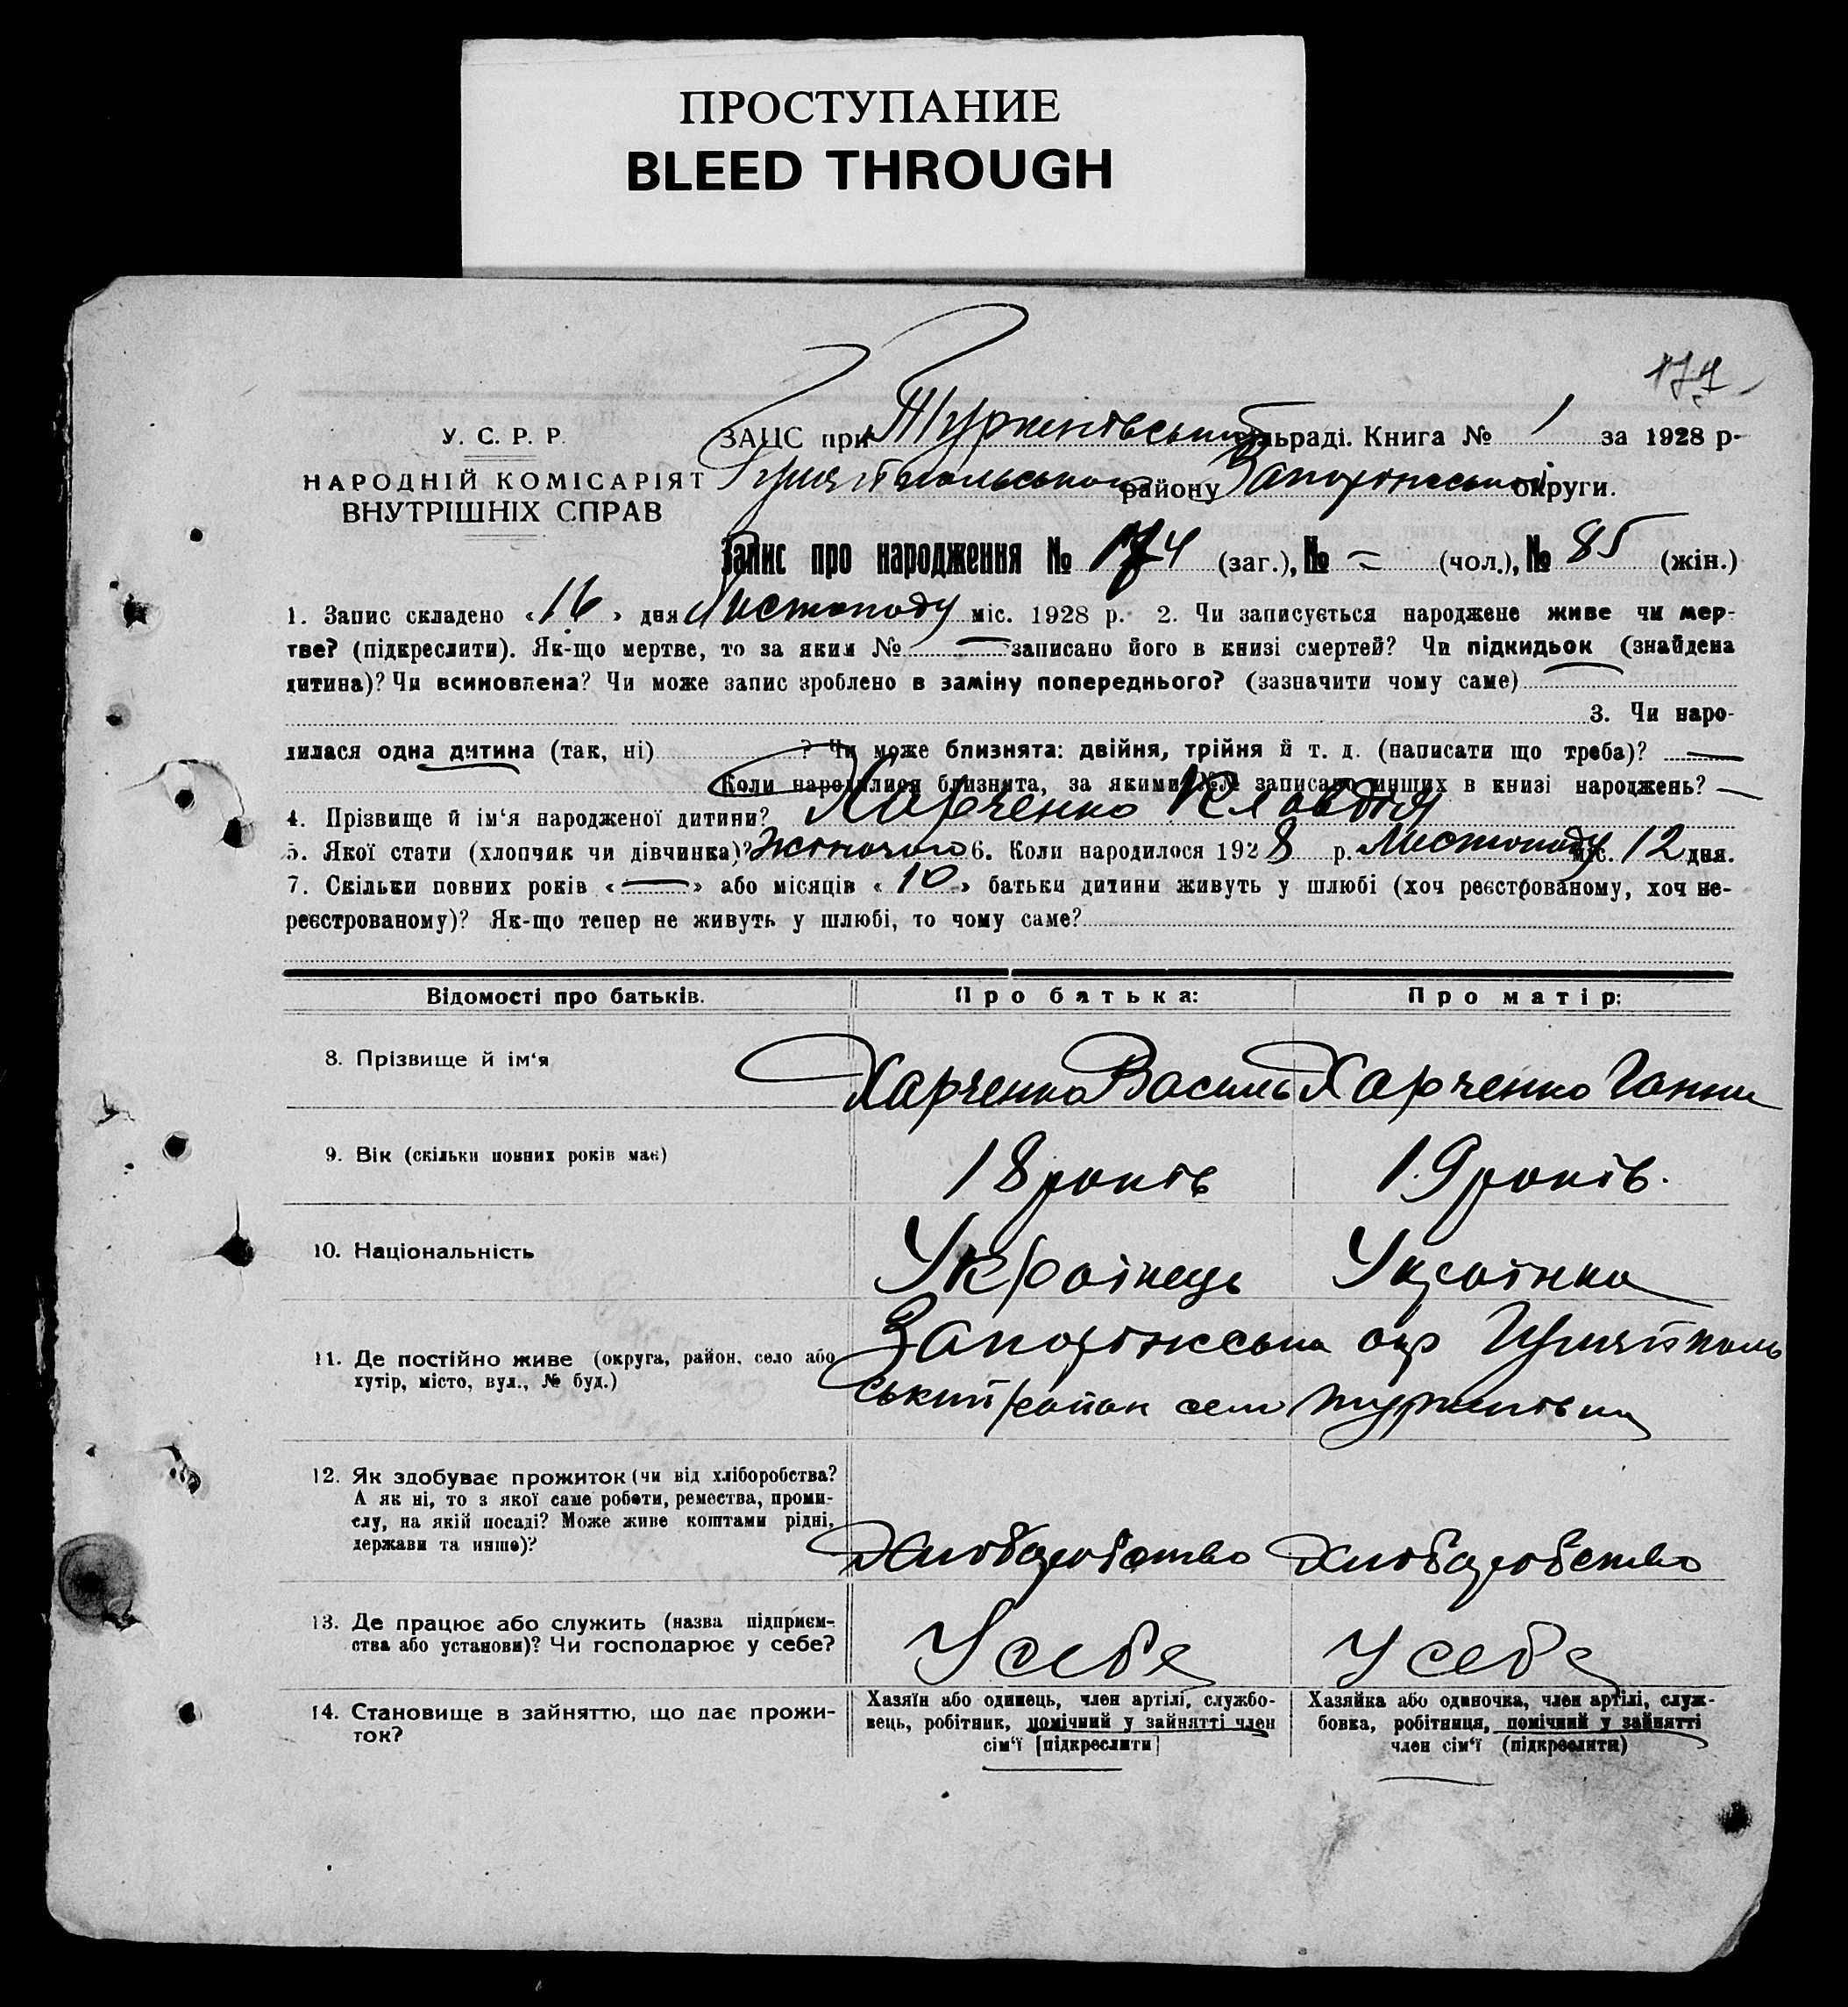 ПРОСТУПАНИЕ
BLEED THROUGH
177
У. С. Р. Р.
НАРОДНІЙ КОМІСАРІЯТ
ВНУТРІШНІХ СПРАВ
ЗАЦС при Туркенівський сільраді. Книга № 1 за 1928 р.
Гуляйпольського району Запоріжської округи.
Запис про народження № 174 (заг.), № = (чол.), № 85 (жін.)
1. Запис складено «16» дня Листопаду міс. 1928 р. 2. Чи записується народжене живе чи мер-
тве? (підкреслити). Як-що мертве, то за яким № — записано його в книзі смертей? Чи підкидьок (знайдена
дитина)? Чи всиновлена? Чи може запис зроблено в заміну попереднього? (зазначити чому саме)
3. Чи наро-
дилася одна дитина (так, ні) ? Чи може близнята: двійня, трійня й т. д. (написати що треба)? —
Коли народилися близнята, за якими №№ записано инших в книзі народжень? —
4. Прізвище й ім'я народженої дитини? Харченко Клавдія
5. Якої стати (хлопчик чи дівчинка)? Жіночого 6. Коли народилося 1928 р. Листопаду міс. 12 дня.
7. Скільки повних років «—» або місяців «10» батьки дитини живуть у шлюбі (хоч реєстрованому, хоч не-
реєстрованому)? Як-що тепер не живуть у шлюбі, то чому саме?
Відомості про батьків. Про батька: Про матір:
8. Прізвище й ім'я Харченко Василь Харченко Ганна
9. Вік (скільки повних років має) 18 років 19 років.
10. Національність Українець Українка
11. Де постійно живе (округа, район, село або Запоріжська окр Гуляйполь
хутір, місто, вул., № буд.) ський район село Туркенівка
12. Як здобуває прожиток (чи від хліборобства?
А як ні, то з якої саме роботи, ремества, проми-
слу, на якій посаді? Може живе коштами рідні,
держави та инше)? Хліборобство Хліборобство
13. Де працює або служить (назва підприєм-
ства або установи)? Чи господарює у себе? У себе У себе
14. Становище в зайняттю, що дає прожи-
ток?
Хазяїн або одинець, член артілі, службо-
вець, робітник, помічний у зайнятті член
сім'ї [підкреслити]
Хазяйка або одиночка, член артілі, служ-
бовка, робітниця, помічний у зайнятті
член сім'ї (підкреслити)